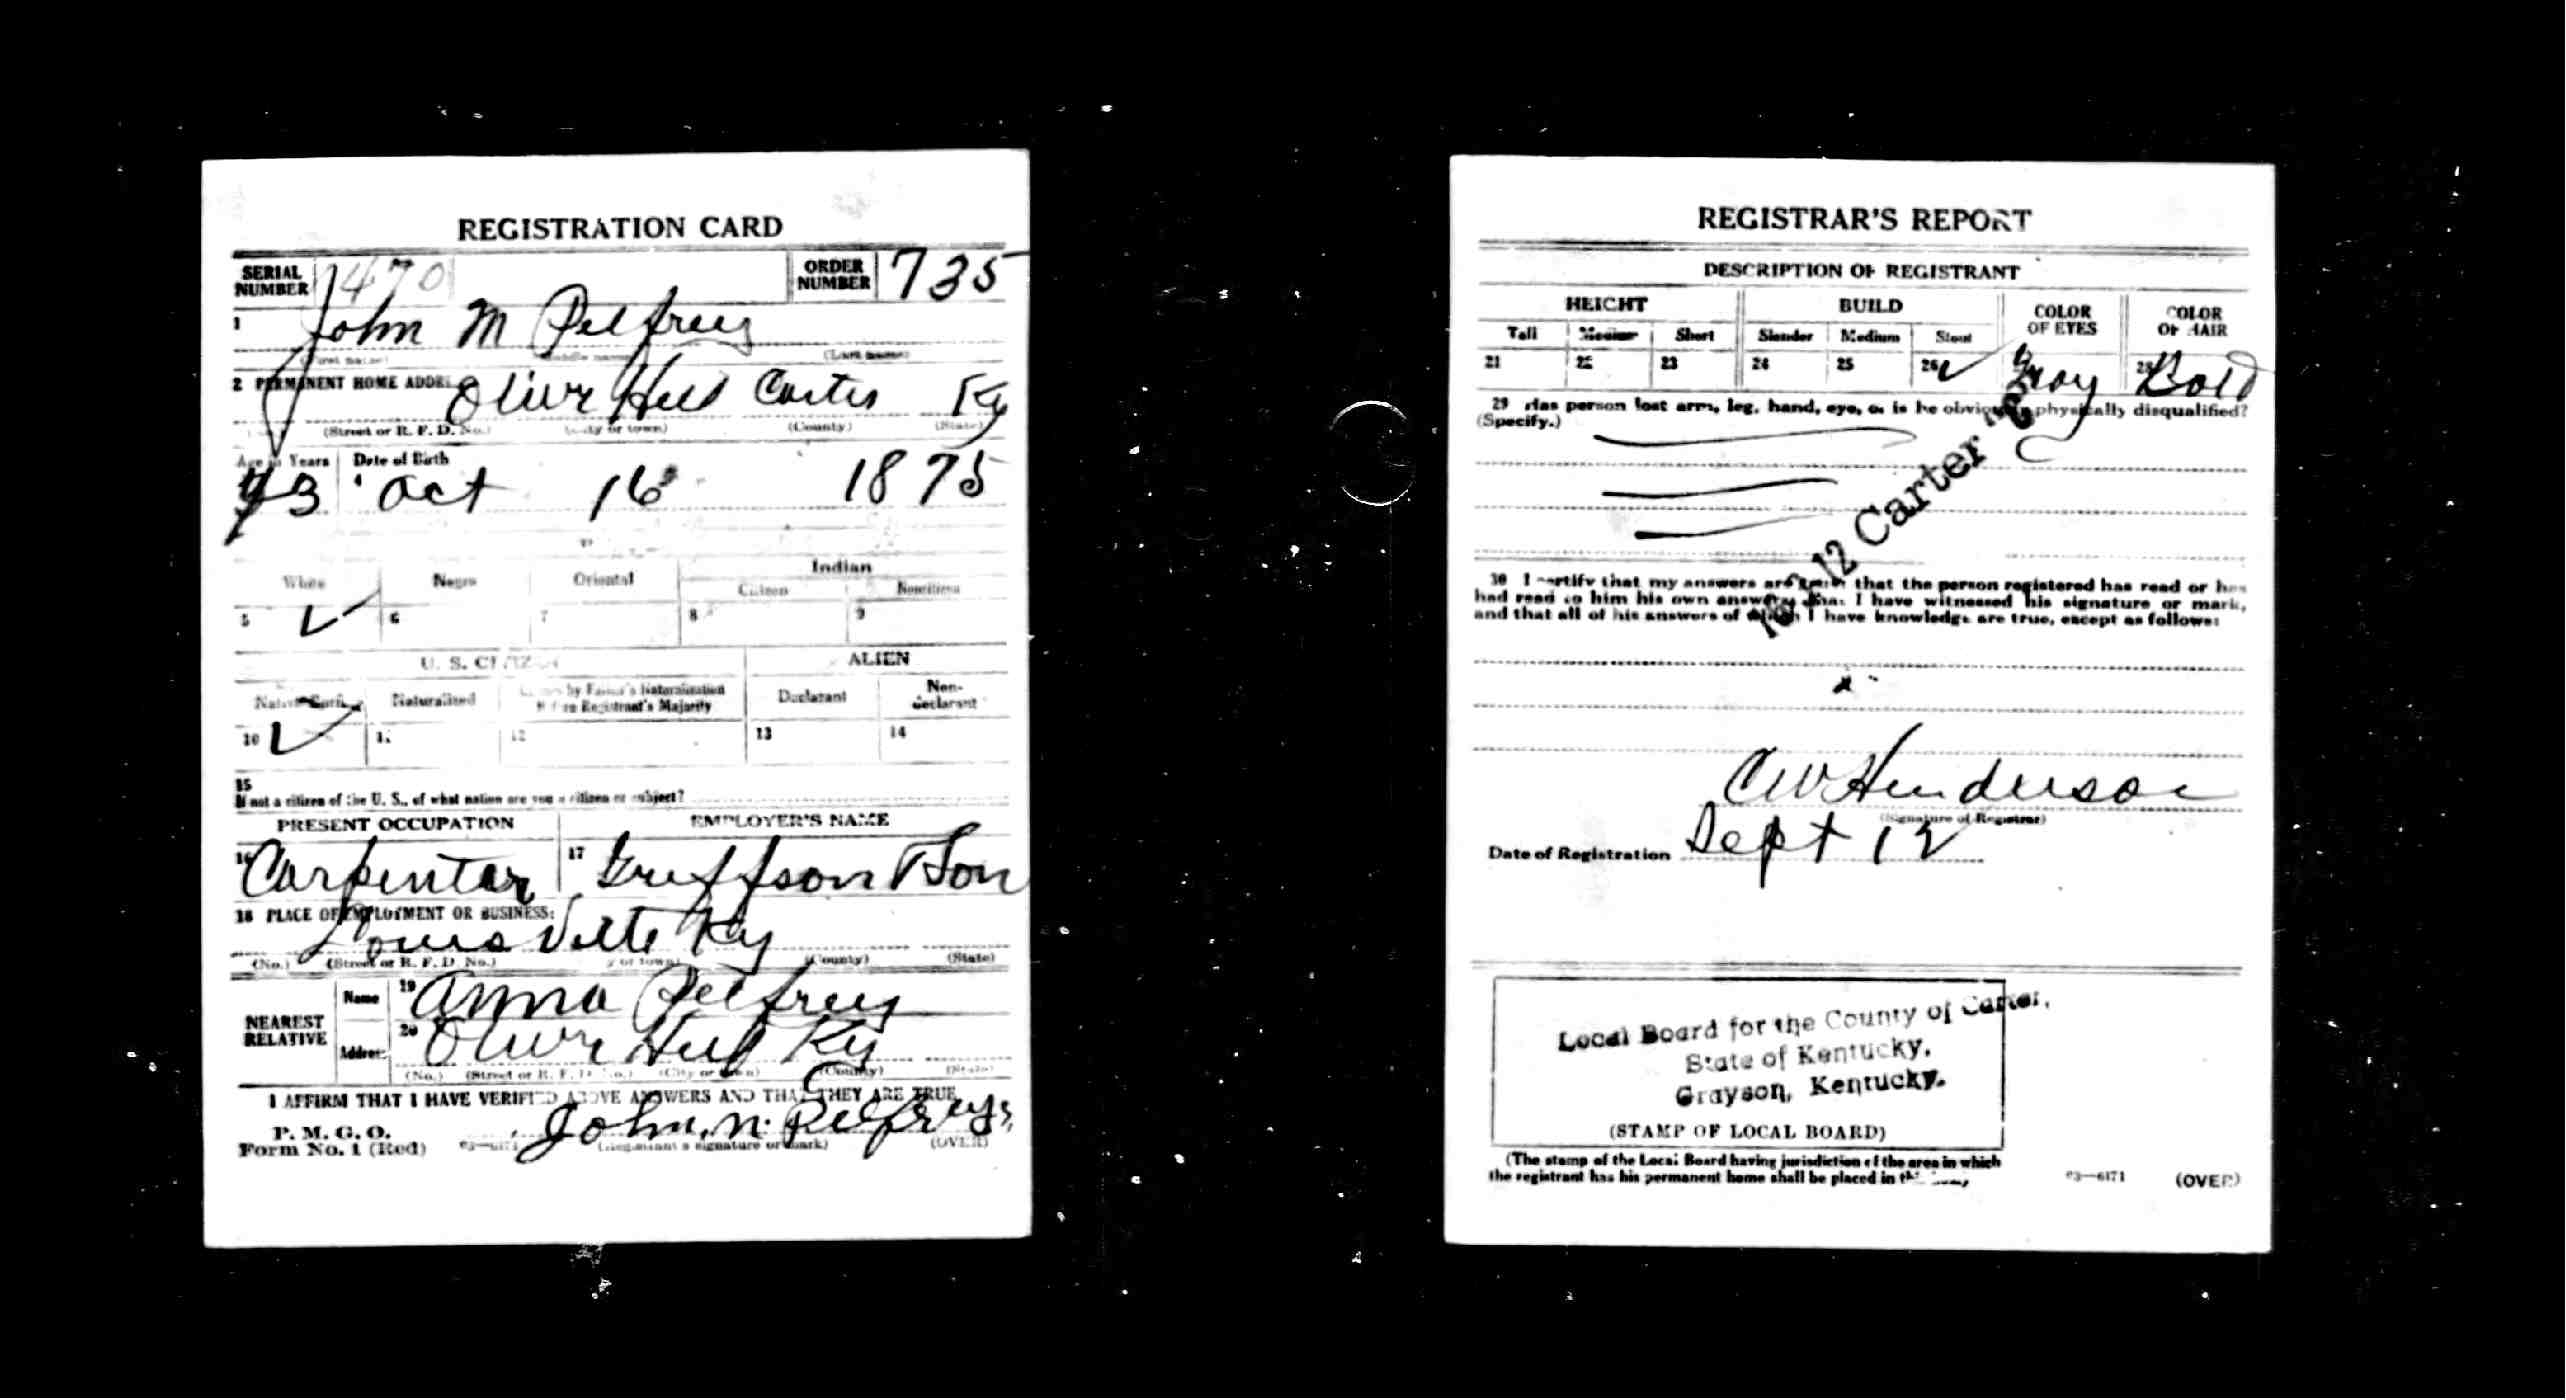 REGISTRATION CARD
SERIAL NUMBER 1470 ORDER NUMBER 735
1 John M Pelfrey
(First name) (Middle name) (Last name)
2 PERMANENT HOME ADDRESS Olive Hill Carter Ky
(Street or R. F. D. No.) (City or town) (County) (State)
Age in Years Date of Birth
43 Oct 16 1875
White Negro Oriental Indian
Citizen Noncitizen
5 ✓ 6 7 8 9
U. S. CITIZEN ALIEN
Native Born Naturalized Citizen by Father's Naturalization Before Registrant's Majority Declarant Non-declarant
10 ✓ 11 12 13 14
15
If not a citizen of the U. S., of what nation are you a citizen or subject?
PRESENT OCCUPATION EMPLOYER'S NAME
16 Carpenter 17 Son
18 PLACE OF EMPLOYMENT OR BUSINESS:
Louisville Ky
(No.) (Street or R. F. D. No.) (City or town) (County) (State)
NEAREST RELATIVE Name 19 Anna Pelfrey
Address 20 Olive Hill Ky
(No.) (Street or R. F. D. No.) (City or town) (County) (State)
I AFFIRM THAT I HAVE VERIFIED ABOVE ANSWERS AND THAT THEY ARE TRUE
P. M. G. O.
Form No. 1 (Red) 03—6171 John. M. Pelfrey
(Registrant's signature or mark) (OVER)
REGISTRAR'S REPORT
DESCRIPTION OF REGISTRANT
HEIGHT BUILD COLOR OF EYES COLOR OF HAIR
Tall Medium Short Slender Medium Stout
21 22 23 24 25 26 ✓ Gray 28 Bold
29 Has person lost arm, leg, hand, eye, or is he obviously physically disqualified?
(Specify.)
12 Carter
30 I certify that my answers are true; that the person registered has read or has
had read to him his own answers; that I have witnessed his signature or mark,
and that all of his answers of which I have knowledge are true, except as follows:
C W Henderson
(Signature of Registrar)
Date of Registration Sept 12
Local Board for the County of Carter,
State of Kentucky,
Grayson, Kentucky.
(STAMP OF LOCAL BOARD)
(The stamp of the Local Board having jurisdiction of the area in which
the registrant has his permanent home shall be placed in this
03—6171 (OVER)